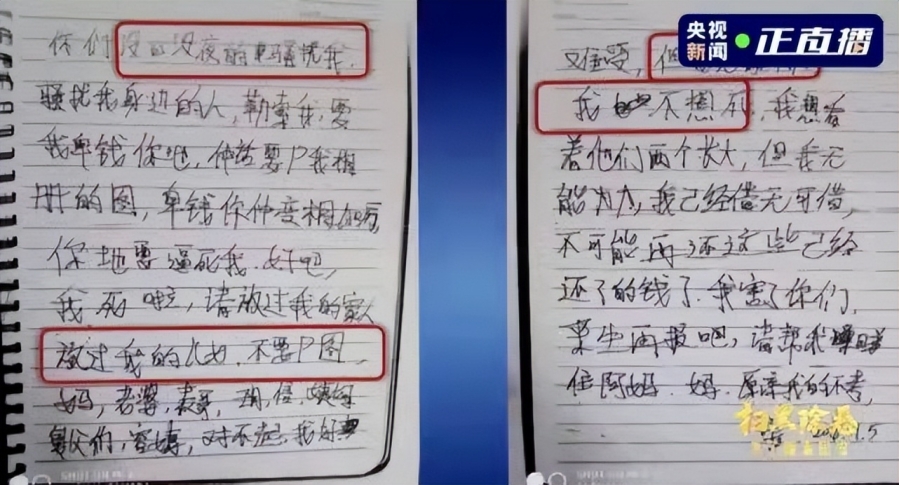 央视新闻 正直播
你们没日没夜的骚扰我.
骚扰我身边的人,勒索我,要
我卑钱你地,仲话要P我相
册的图,卑钱你仲变相加 
你地要逼死我.好吧,
我死啦,请放过我的家人
放过我的儿女.不要P图,
妈,老婆,表哥,
舅父们,对不起.我好
难受,但
我 不想死,我想看
着他们两个长大,但我无
能为力,我已经借无可借,
不可能再还这些已经
还了的钱了.我害了你们,
来生再报吧,请帮我
住阿妈.妈.原谅我的不孝,
扫黑除恶
1.5